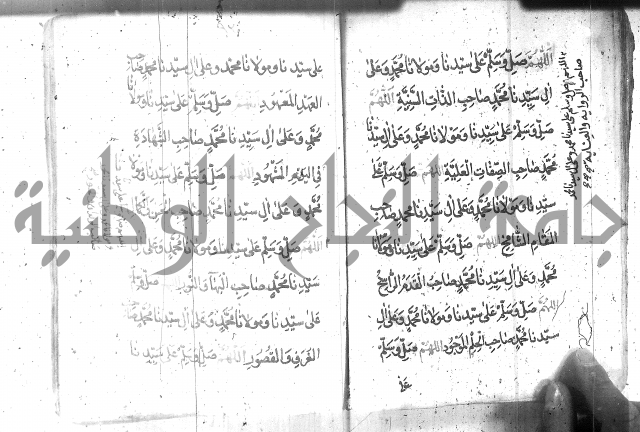 اللهم صل وسلم على سيدنا ومولانا محمد وعلى
ال سيدنا محمد صاحب الذات السنية اللهم
صل وسلم على سيدنا ومولانا محمد وعلى ال سيدنا
محمد صاحب الصفات العلية اللهم صل وسلم على
سيدنا ومولانا محمد وعلى ال سيدنا محمد صاحب
المقام الشامخ اللهم صل وسلم على سيدنا ومولانا
محمد وعلى ال سيدنا محمد صاحب القدم الراسخ
اللهم صل وسلم على سيدنا ومولانا محمد وعلى ال
سيدنا محمد صاحب الموجود اللهم صل وسلم
على
على سيدنا ومولانا محمد وعلى ال سيدنا محمد صاحب
العهد المعهود اللهم صل وسلم على سيدنا ومولانا
محمد وعلى ال سيدنا محمد صاحب الشهادة
في اليوم المشهود اللهم صل وسلم على سيدنا ومولانا
محمد وعلى ال سيدنا محمد صاحب
اللهم صل وسلم على سيدنا ومولانا محمد وعلى ال
سيدنا محمد صاحب البهاء والنور اللهم صل وسلم
على سيدنا ومولانا محمد وعلى ال سيدنا محمد صاحب
الغرف والقصور اللهم صل وسلم على سيدنا
جامعة النجاح الوطنية